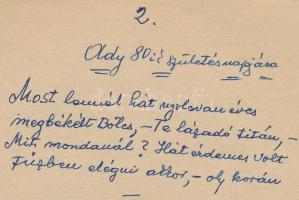 2.
Ady 80-ik születésnapjára
Most lennél hát nyolcvanéves
megbékélt Bölcs, – Te lázadó titán, –
Mit mondanál? Hát érdemes volt
Tűzben elégni akkor, – oly korán